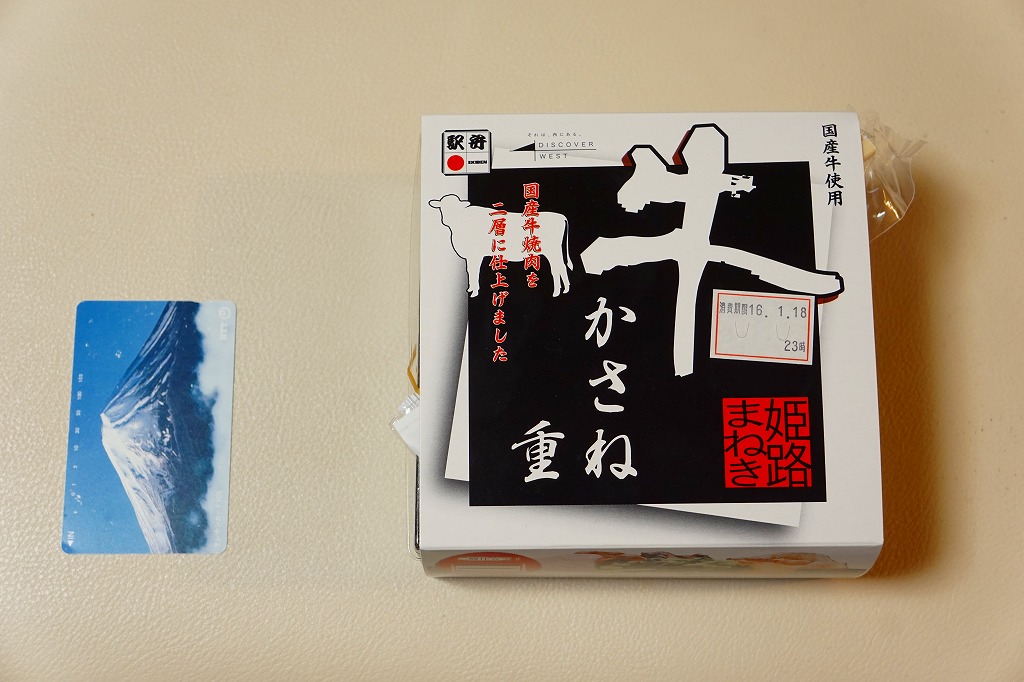 駅弁
EKIBEN
それは、西にある。
DISCOVER
WEST
国産牛使用
牛
かさね
重
国産牛焼肉を
二層に仕上げました
消費期限16. 1.18
23時
姫路
まねき